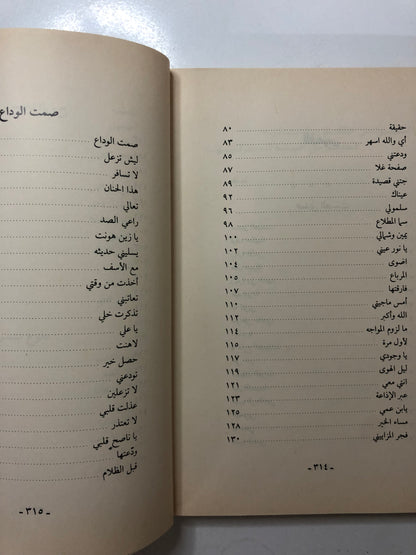 حقيقة ٨٠
أي والله اسهر ٨٣
ودعتني ٨٥
صفحة غلا ٨٧
جتني قصيدة ٨٩
عيناك ٩٢
سلمولي ٩٦
سما المطلاع ٩٨
يمين وشمالي ١٠٠
يا نور عيني ١٠٢
اضوى ١٠٤
المرباع ١٠٥
فارقتها ١٠٧
أمس ماجيتي ١١٠
الله وأكبر ١١٢
ما لزوم المواجه ١١٤
لأول مرة ١١٥
يا وجودي ١١٧
ليل الهوى ١١٩
انتي معي ١٢١
عبر الإذاعة ١٢٣
يابن عمي ١٢٥
مساء الخير ١٢٨
فجر المزاييني ١٣٠
ـ ٣١٤ ـ
صمت الوداع
صمت الوداع
ليش تزعل
لا تسافر
هذا الحنان
تعالي
راعي الصد
يا زين هونت
يسليني حديثه
مع الأسف
أخذت من وقتي
تعاتبني
تذكرت خلي
يا علي
لاهنت
حصل خير
نودعني
لا تزعلين
عذلت قلبي
لا تعتذر
يا ناصح قلبي
ودّعتها
قبل الظلام
ـ ٣١٥ ـ